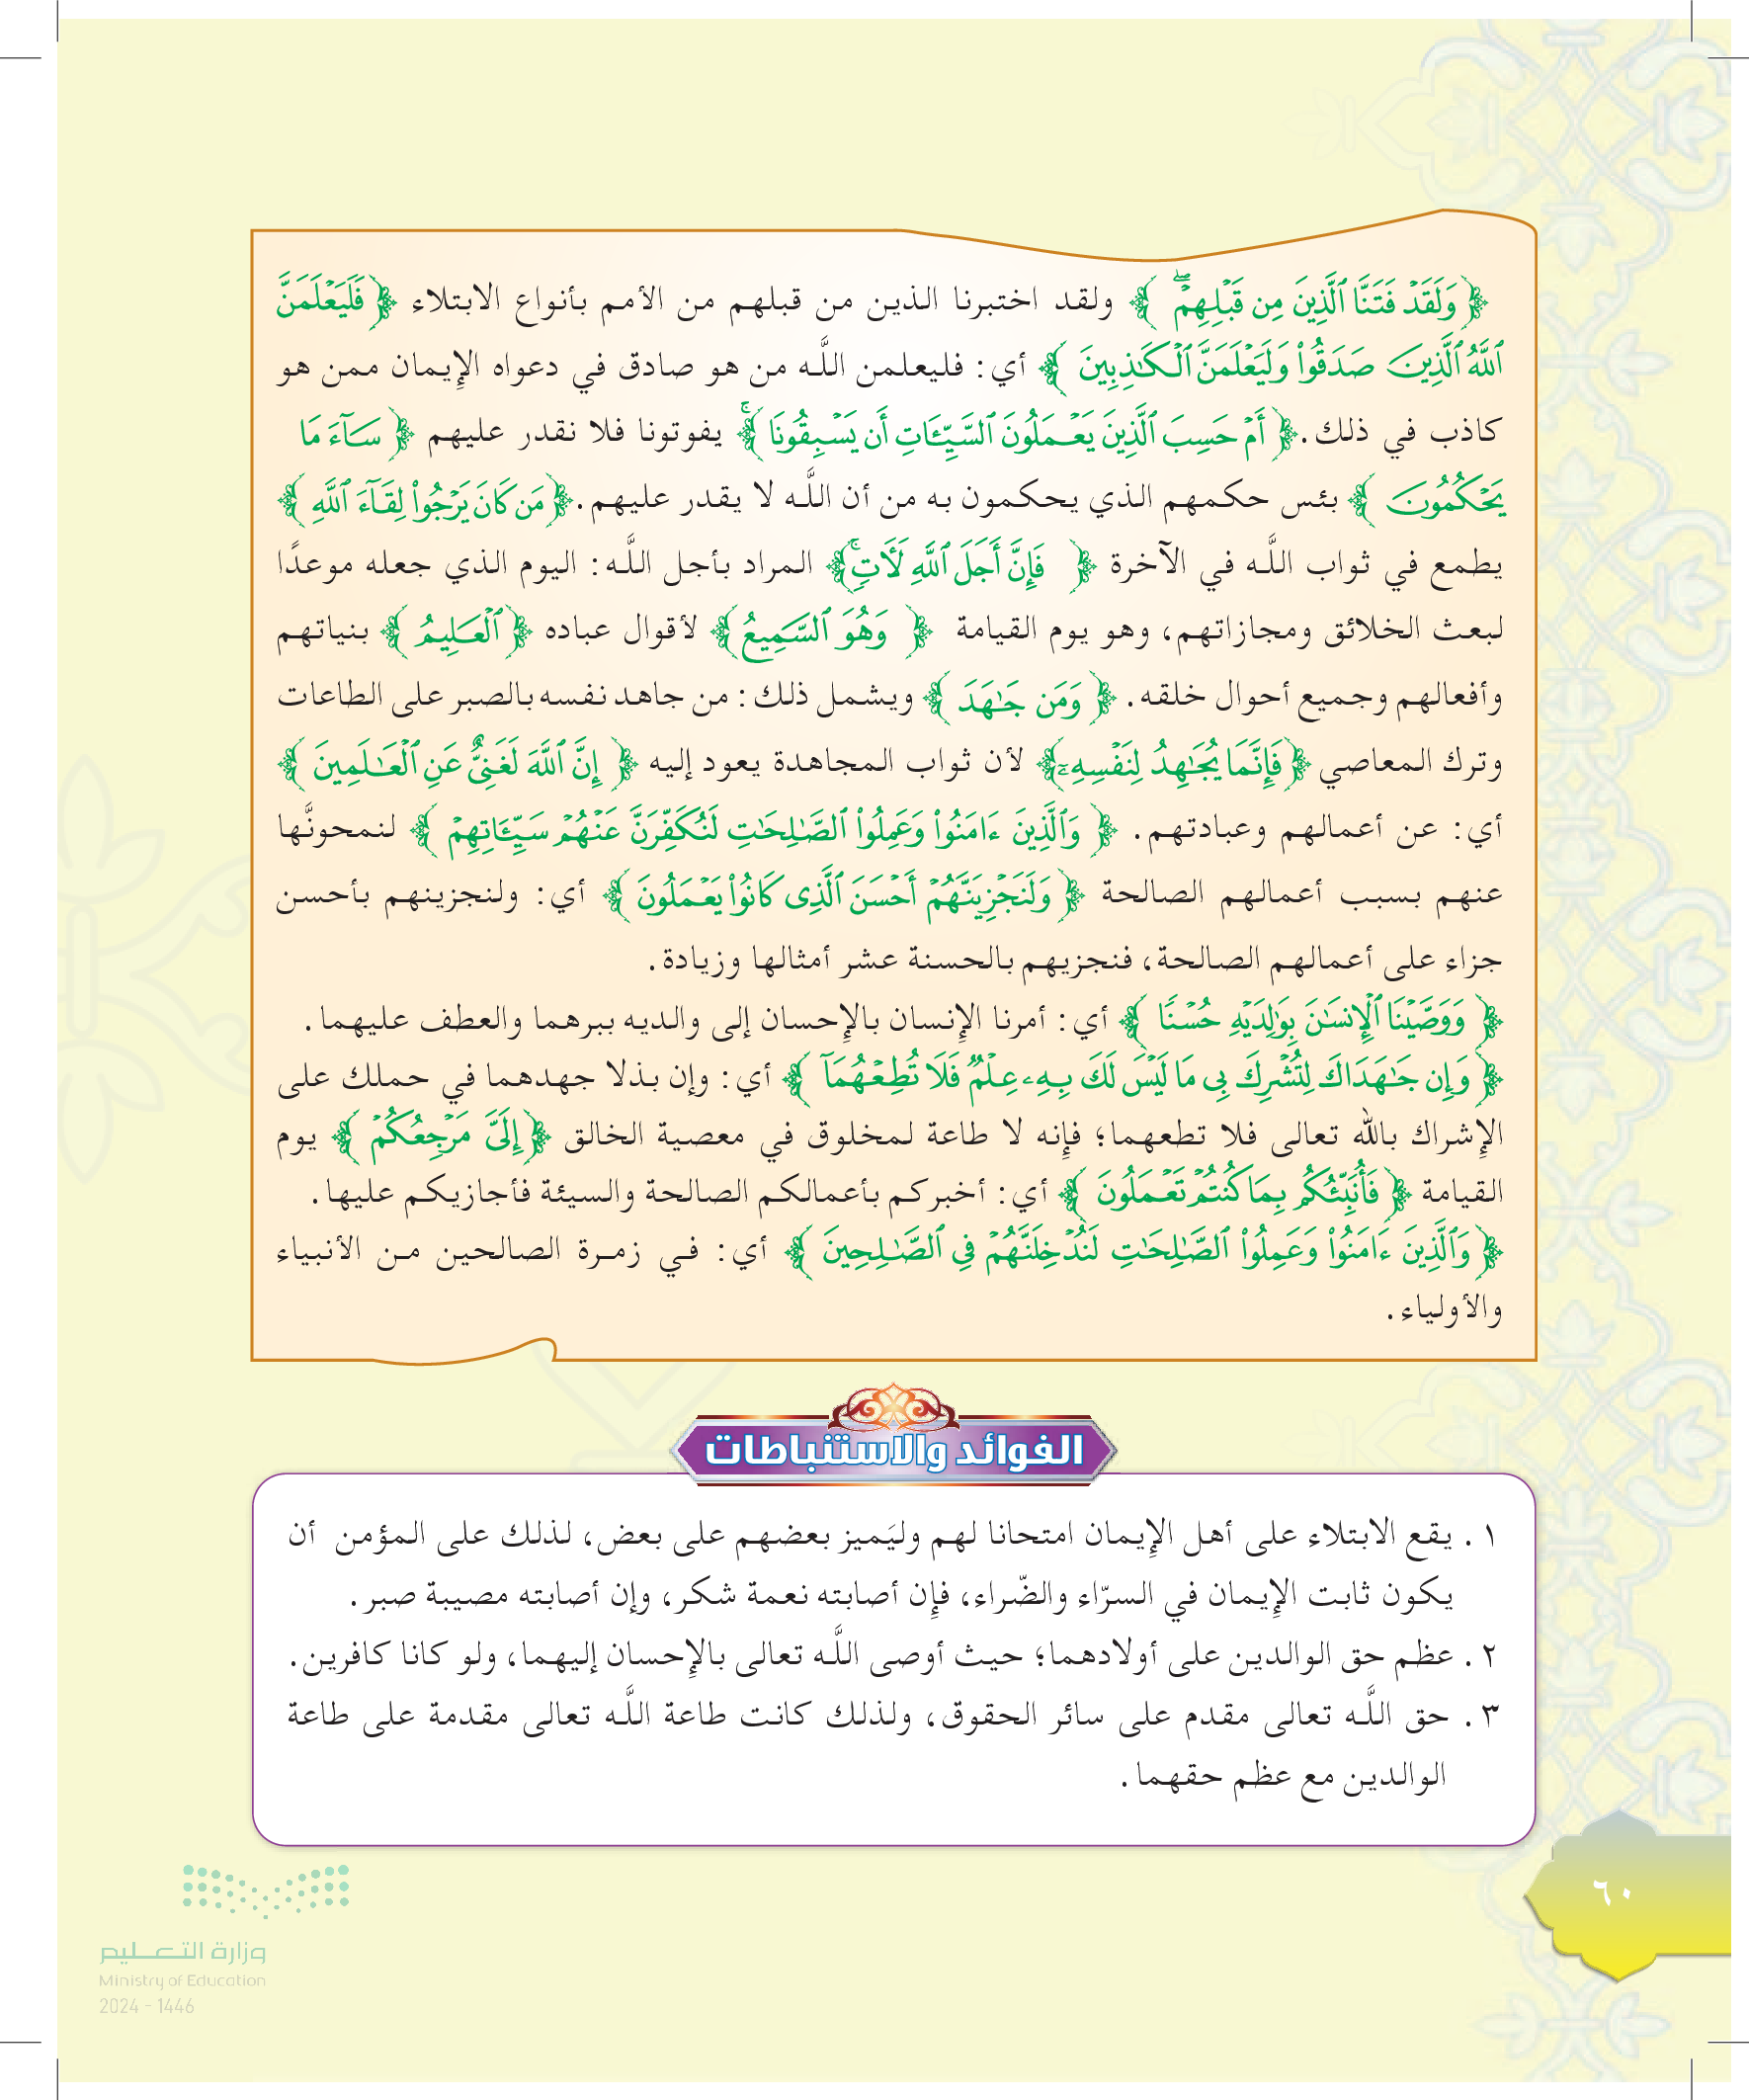 ﴿وَلَقَدْ فَتَنَّا ٱلَّذِينَ مِن قَبْلِهِمْ ۖ﴾ ولقد اختبرنا الذين من قبلهم من الأمم بأنواع الابتلاء ﴿فَلَيَعْلَمَنَّ
ٱللَّهُ ٱلَّذِينَ صَدَقُوا۟ وَلَيَعْلَمَنَّ ٱلْكَـٰذِبِينَ﴾ أي: فليعلمن اللَّه من هو صادق في دعواه الإيمان ممن هو
كاذب في ذلك. ﴿أَمْ حَسِبَ ٱلَّذِينَ يَعْمَلُونَ ٱلسَّيِّـَٔاتِ أَن يَسْبِقُونَا ۚ﴾ يفوتونا فلا نقدر عليهم ﴿سَآءَ مَا
يَحْكُمُونَ﴾ بئس حكمهم الذي يحكمون به من أن اللَّه لا يقدر عليهم. ﴿مَن كَانَ يَرْجُوا۟ لِقَآءَ ٱللَّهِ﴾
يطمع في ثواب اللَّه في الآخرة ﴿فَإِنَّ أَجَلَ ٱللَّهِ لَـَٔاتٍ ۚ﴾ المراد بأجل اللَّه: اليوم الذي جعله موعدًا
لبعث الخلائق ومجازاتهم، وهو يوم القيامة ﴿وَهُوَ ٱلسَّمِيعُ﴾ لأقوال عباده ﴿ٱلْعَلِيمُ﴾ بنياتهم
وأفعالهم وجميع أحوال خلقه. ﴿وَمَن جَـٰهَدَ﴾ ويشمل ذلك: من جاهد نفسه بالصبر على الطاعات
وترك المعاصي ﴿فَإِنَّمَا يُجَـٰهِدُ لِنَفْسِهِۦٓ﴾ لأن ثواب المجاهدة يعود إليه ﴿إِنَّ ٱللَّهَ لَغَنِىٌّ عَنِ ٱلْعَـٰلَمِينَ﴾
أي: عن أعمالهم وعبادتهم. ﴿وَٱلَّذِينَ ءَامَنُوا۟ وَعَمِلُوا۟ ٱلصَّـٰلِحَـٰتِ لَنُكَفِّرَنَّ عَنْهُمْ سَيِّـَٔاتِهِمْ﴾ لنمحونَّها
عنهم بسبب أعمالهم الصالحة ﴿وَلَنَجْزِيَنَّهُمْ أَحْسَنَ ٱلَّذِى كَانُوا۟ يَعْمَلُونَ﴾ أي: ولنجزينهم بأحسن
جزاء على أعمالهم الصالحة، فنجزيهم بالحسنة عشر أمثالها وزيادة.
﴿وَوَصَّيْنَا ٱلْإِنسَـٰنَ بِوَٰلِدَيْهِ حُسْنًا﴾ أي: أمرنا الإنسان بالإحسان إلى والديه ببرهما والعطف عليهما.
﴿وَإِن جَـٰهَدَاكَ لِتُشْرِكَ بِى مَا لَيْسَ لَكَ بِهِۦ عِلْمٌ فَلَا تُطِعْهُمَآ﴾ أي: وإن بذلا جهدهما في حملك على
الإشراك بالله تعالى فلا تطعهما؛ فإنه لا طاعة لمخلوق في معصية الخالق ﴿إِلَىَّ مَرْجِعُكُمْ﴾ يوم
القيامة ﴿فَأُنَبِّئُكُم بِمَا كُنتُمْ تَعْمَلُونَ﴾ أي: أخبركم بأعمالكم الصالحة والسيئة فأجازيكم عليها.
﴿وَٱلَّذِينَ ءَامَنُوا۟ وَعَمِلُوا۟ ٱلصَّـٰلِحَـٰتِ لَنُدْخِلَنَّهُمْ فِى ٱلصَّـٰلِحِينَ﴾ أي: في زمرة الصالحين من الأنبياء
والأولياء.
الفوائد والاستنباطات
١. يقع الابتلاء على أهل الإيمان امتحانا لهم وليَميز بعضهم على بعض، لذلك على المؤمن أن
يكون ثابت الإيمان في السرّاء والضّراء، فإن أصابته نعمة شكر، وإن أصابته مصيبة صبر.
٢. عظم حق الوالدين على أولادهما؛ حيث أوصى اللَّه تعالى بالإحسان إليهما، ولو كانا كافرين.
٣. حق اللَّه تعالى مقدم على سائر الحقوق، ولذلك كانت طاعة اللَّه تعالى مقدمة على طاعة
الوالدين مع عظم حقهما.
٦٠
وزارة التعليم
Ministry of Education
2024 - 1446